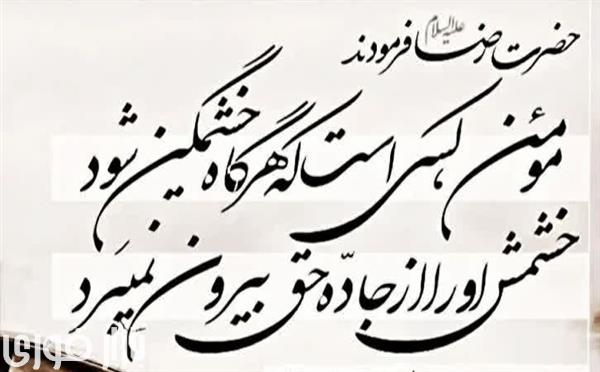 حضرت رضا علیه‌السلام فرمودند
مومئن کسی است که هرگاه خشمگین شود
خشمش او را از جادّه حق بیرون نمیبرد